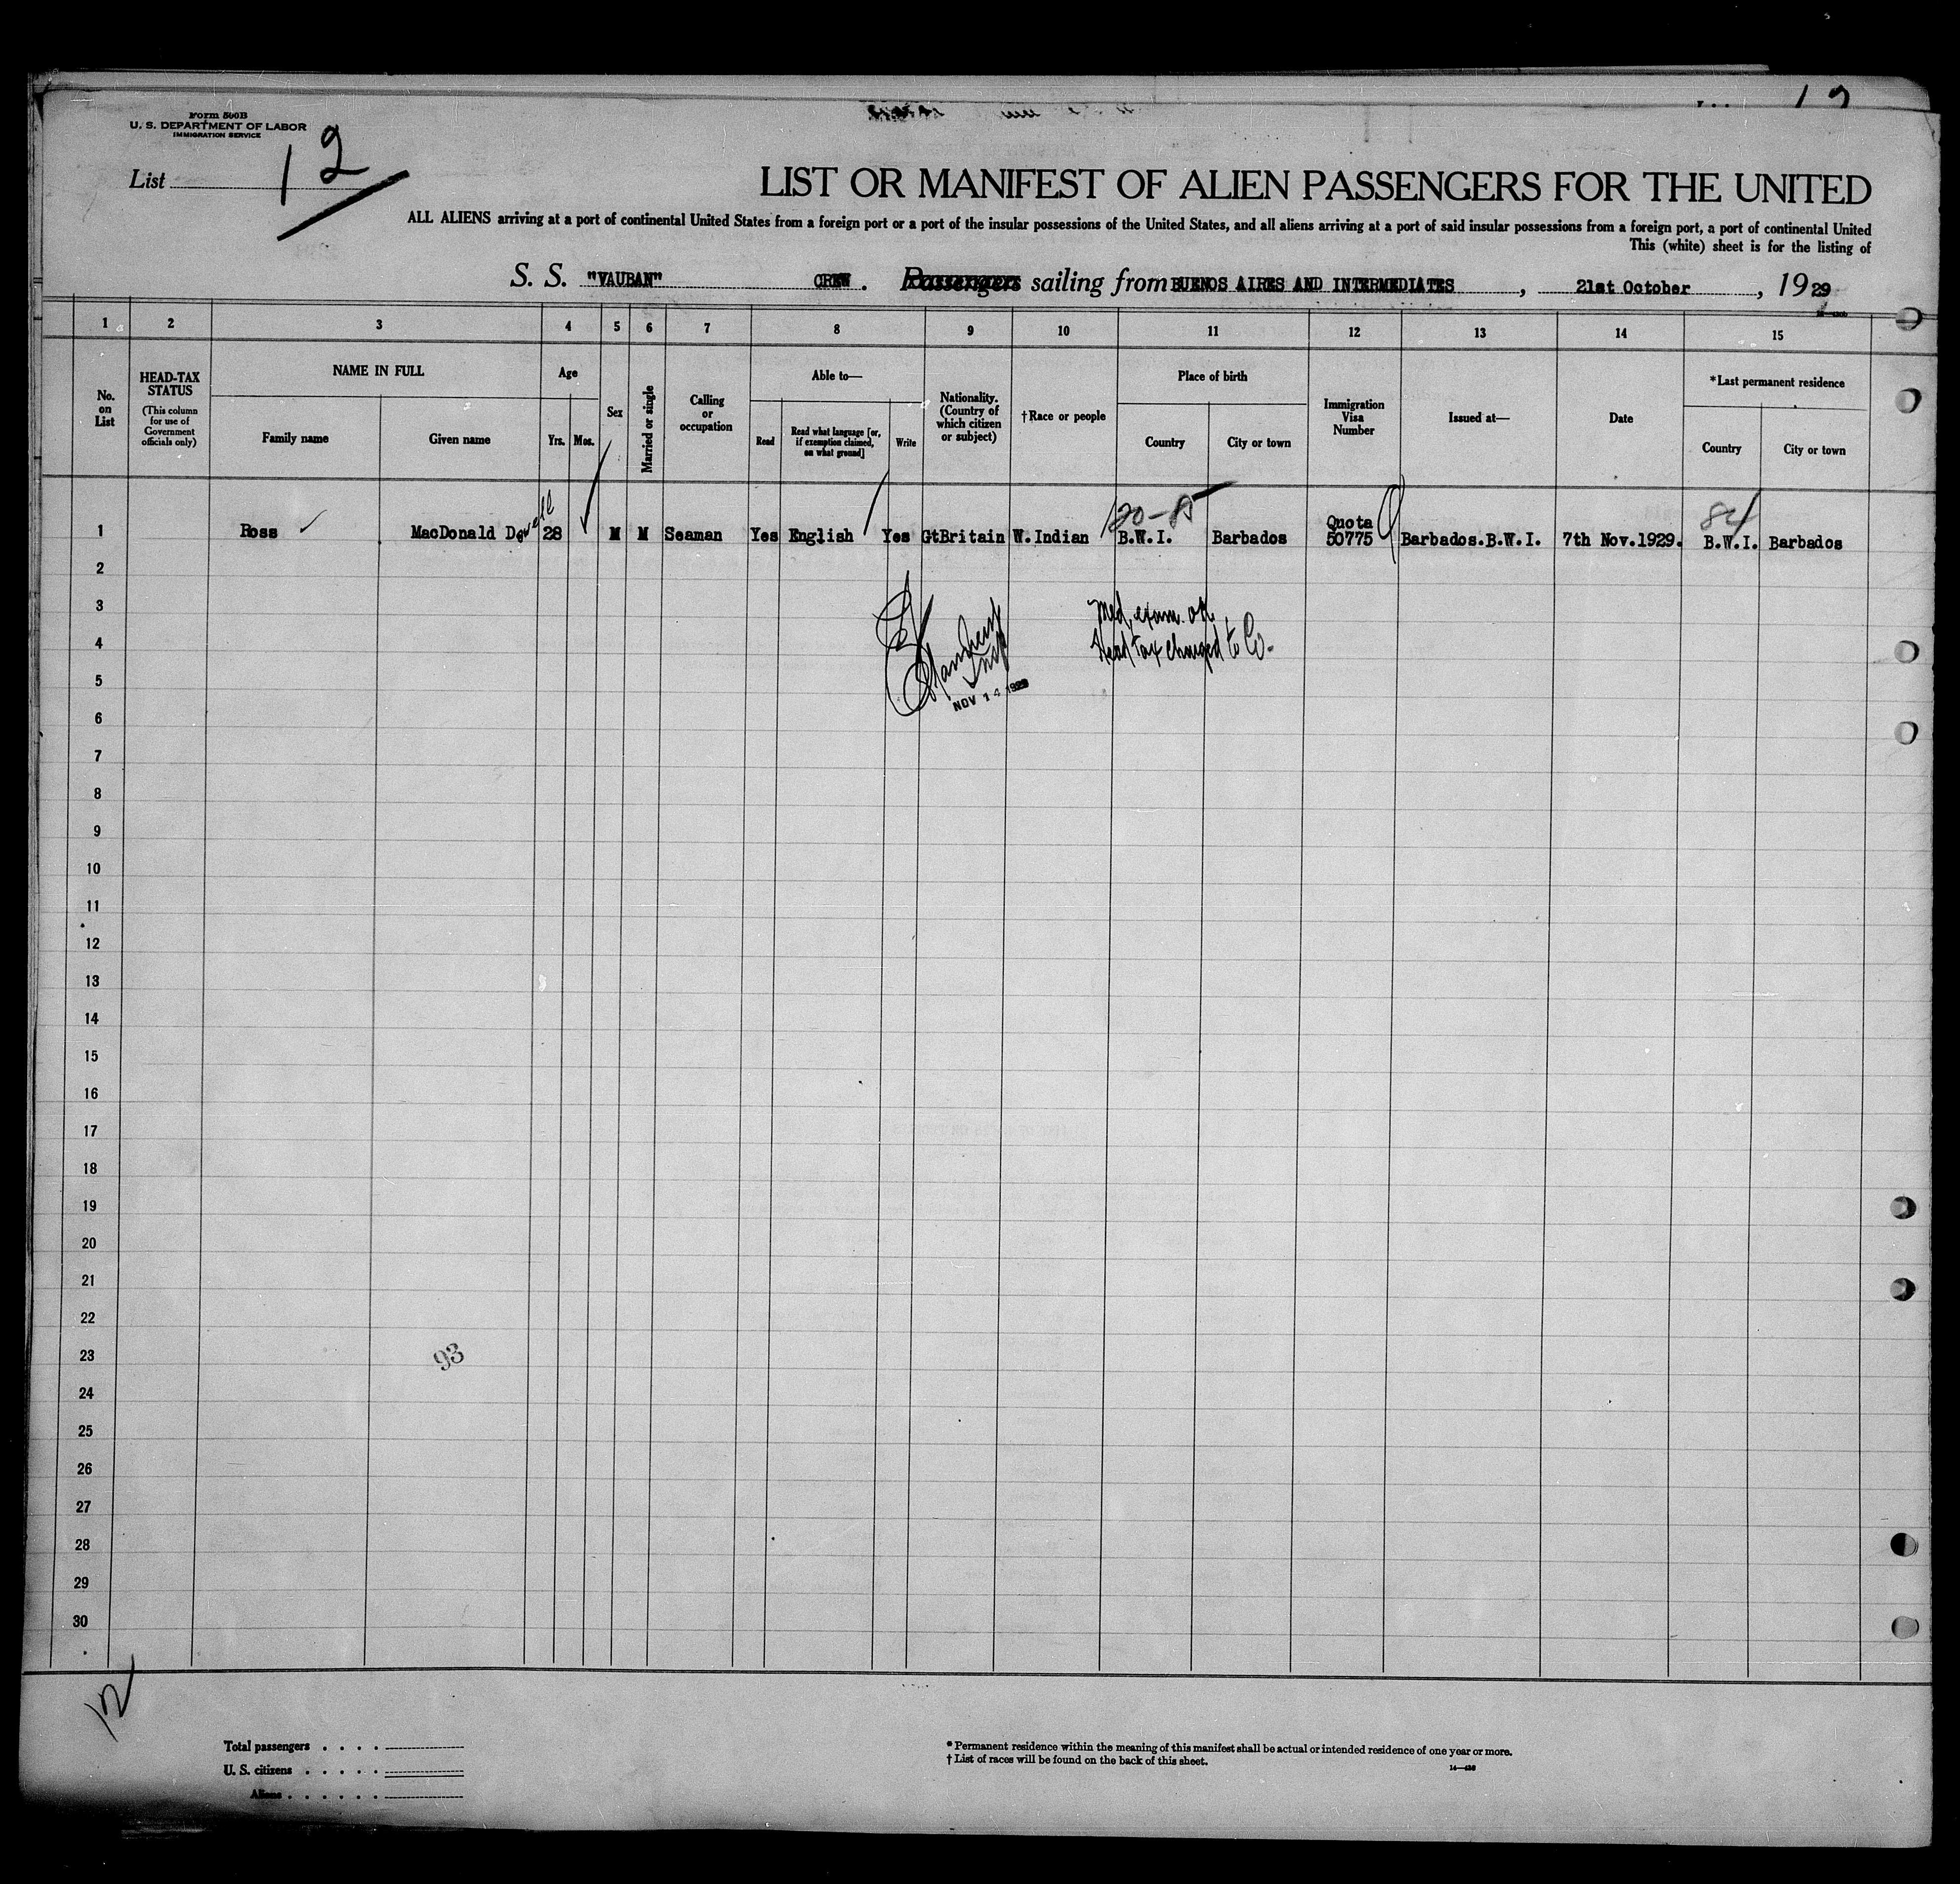 Form 500B
U. S. DEPARTMENT OF LABOR
IMMIGRATION SERVICE
List 12
LIST OR MANIFEST OF ALIEN PASSENGERS FOR THE UNITED
ALL ALIENS arriving at a port of continental United States from a foreign port or a port of the insular possessions of the United States, and all aliens arriving at a port of said insular possessions from a foreign port, a port of continental United
This (white) sheet is for the listing of
S. S. "VAUBAN" CREW. Passengers sailing from BUENOS AIRES AND INTERMEDIATES, 21st October, 1929
1 2 3 4 5 6 7 8 9 10 11 12 13 14 15
No. on List
HEAD-TAX STATUS
(This column for use of Government officials only)
NAME IN FULL
Family name
Given name
Age
Yrs.
Mos.
Sex
Married or single
Calling or occupation
Able to—
Read
Read what language [or, if exemption claimed, on what ground]
Write
Nationality. (Country of which citizen or subject)
†Race or people
Place of birth
Country
City or town
Immigration Visa Number
Issued at—
Date
*Last permanent residence
Country
City or town
20-85
84
1 Ross MacDonald 28 M M Seaman Yes English Yes GtBritain W.Indian B.W.I. Barbados Quota 50775 Barbados.B.W.I. 7th Nov.1929. B.W.I. Barbados
2
3
Med. exam. ok.
4
Head tax charged to Co.
5
Insp
NOV 14 1929
6
7
8
9
10
11
12
13
14
15
16
17
18
19
20
21
22
23
93
24
25
26
27
28
29
30
12
Total passengers . . . .
U. S. citizens . . . . .
Aliens . . . . . .
* Permanent residence within the meaning of this manifest shall be actual or intended residence of one year or more.
† List of races will be found on the back of this sheet.